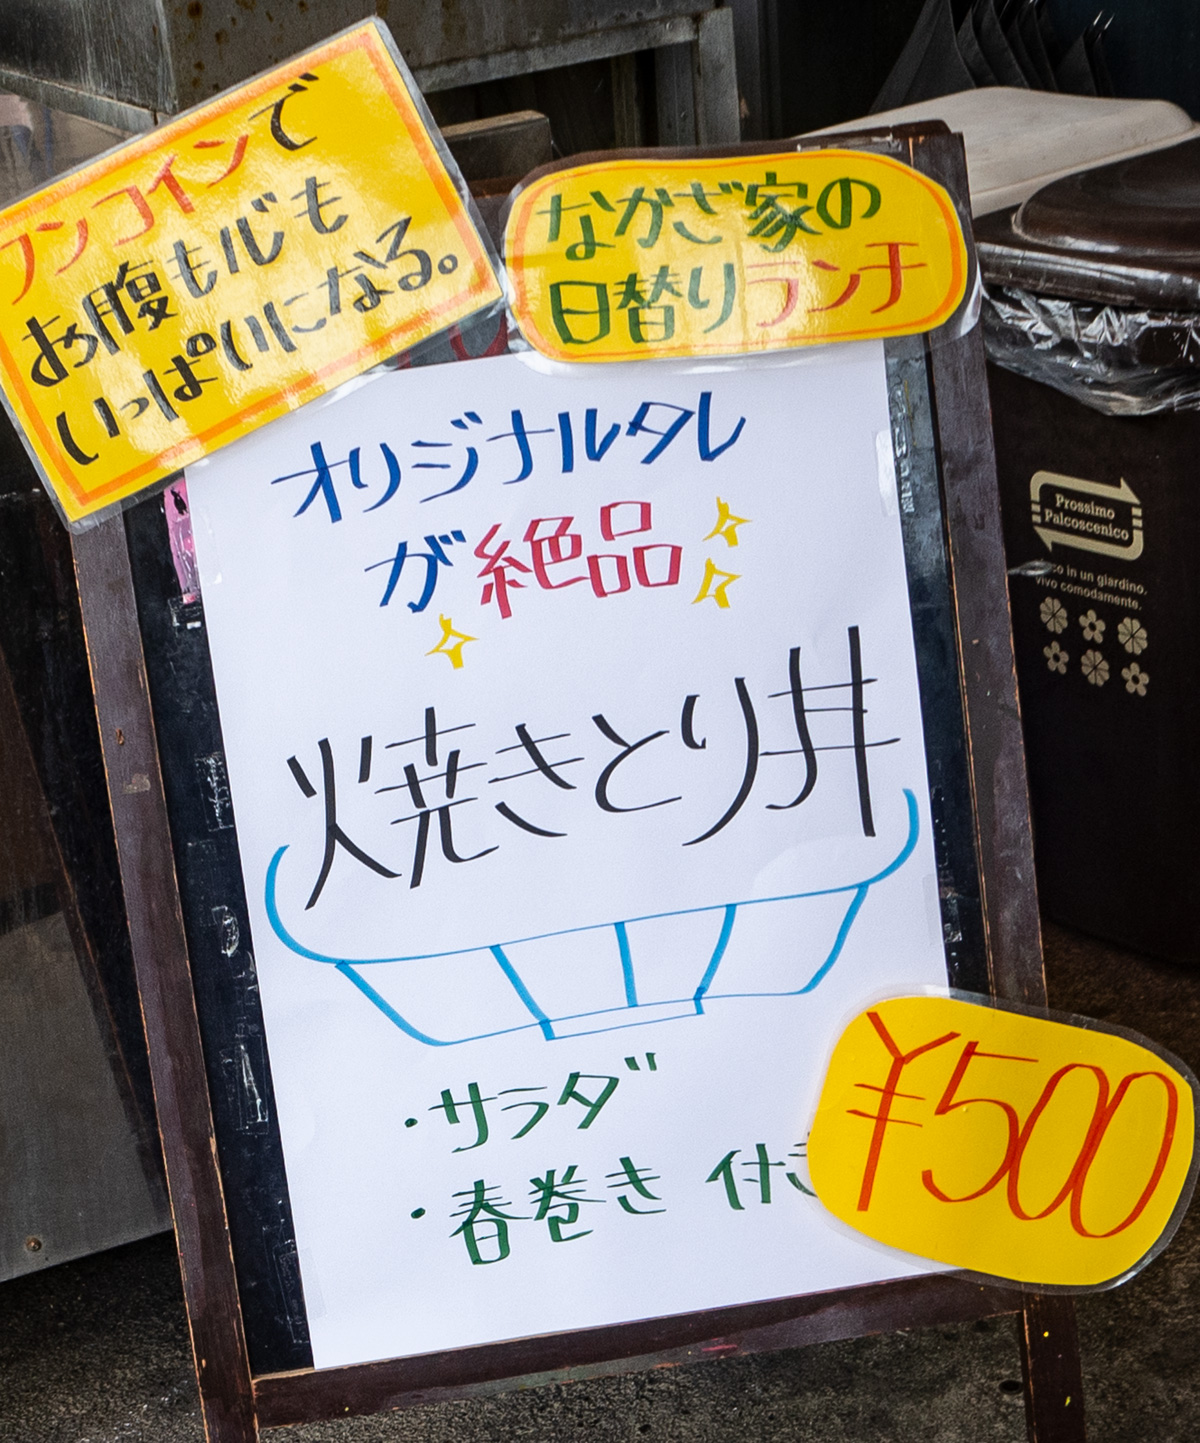 ワンコインで
お腹も心も
いっぱいになる。
なかざ家の
日替りランチ
オリジナルタレ
が絶品
焼きとり丼
・サラダ
・春巻き 付き
¥500
Prossimo
Palcoscenico
co in un giardino.
vivo comodamente.